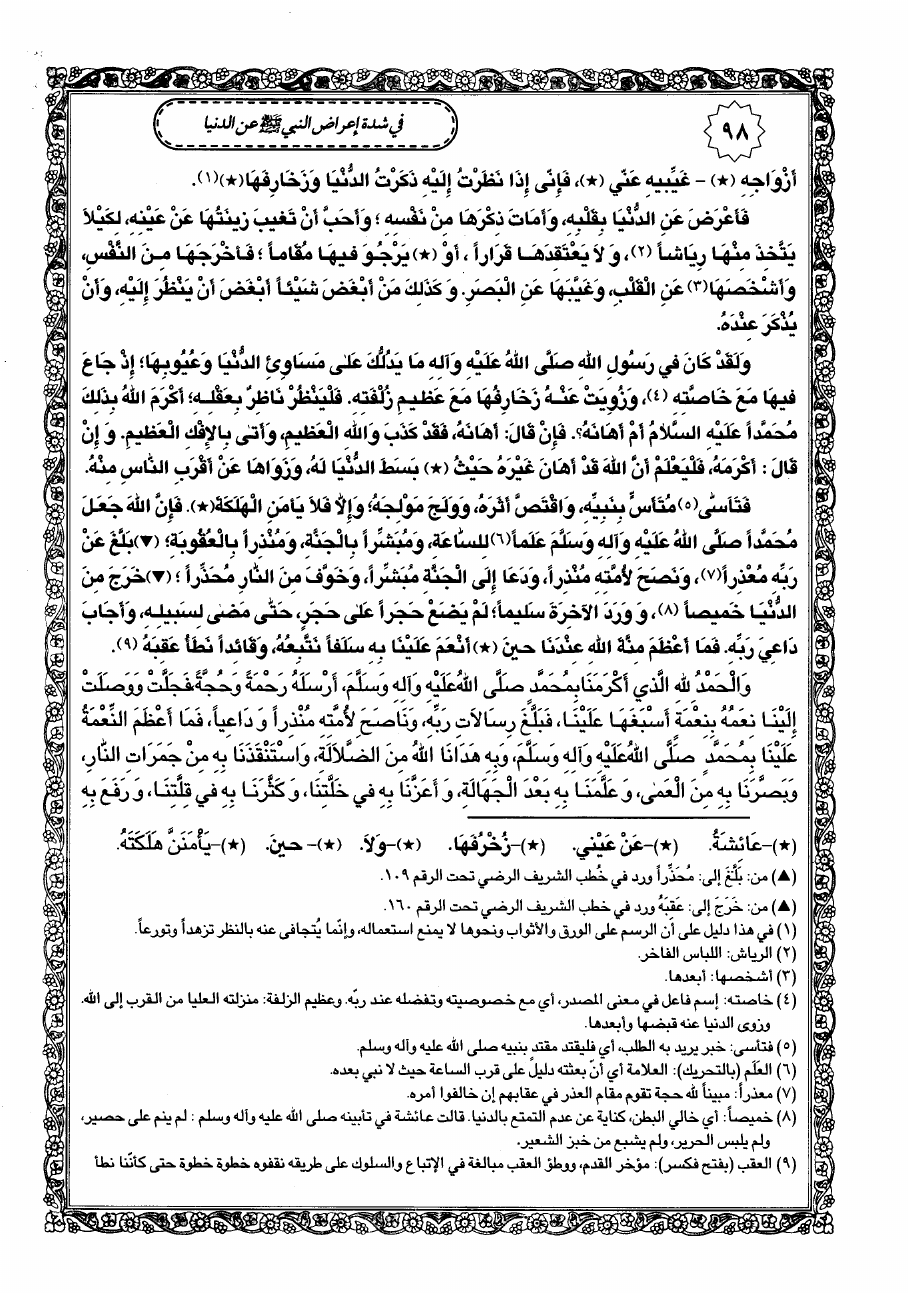 ٩٨
في شدة إعراض النبي ﷺ عن الدنيا
أَزْوَاجِهِ (★) - غَيِّبِيهِ عَنِّي (★)، فَإِنِّي إِذَا نَظَرْتُ إِلَيْهِ ذَكَرْتُ الدُّنْيَا وَزَخَارِفَهَا(★)(١).
فَأَعْرَضَ عَنِ الدُّنْيَا بِقَلْبِهِ، وَأَمَاتَ ذِكْرَهَا مِنْ نَفْسِهِ ؛ وَأَحَبَّ أَنْ تَغيبَ زينَتُهَا عَنْ عَيْنِهِ، لِكَيْلاَ
يَتَّخِذَ مِنْهَا رِيَاشاً (٢)، وَ لاَ يَعْتَقِدَهَا قَرَاراً ، أَوْ (★) يَرْجُوَ فيهَا مُقَاماً ؛ فَأَخْرَجَهَا مِنَ النَّفْسِ،
وَأَشْخَصَهَا(٣) عَنِ الْقَلْبِ، وَغَيَّبَهَا عَنِ الْبَصَرِ. وَ كَذَلِكَ مَنْ أَبْغَضَ شَيْئاً أَبْغَضَ أَنْ يَنْظُرَ إِلَيْهِ، وَأَنْ
يُذْكَرَ عِنْدَهُ.
وَلَقَدْ كَانَ في رَسُولِ اللهِ صَلَّى اللهُ عَلَيْهِ وَآلِهِ مَا يَدُلُّكَ عَلى مَسَاوِئِ الدُّنْيَا وَعُيُوبِهَا؛ إِذْ جَاعَ
فيهَا مَعَ خَاصَّتِهِ (٤)، وَزُوِيَتْ عَنْهُ زَخَارِفُهَا مَعَ عَظيمِ زُلْفَتِهِ. فَلْيَنْظُرْ نَاظِرٌ بِعَقْلِهِ؛ أَكْرَمَ اللهُ بِذَلِكَ
مُحَمَّداً عَلَيْهِ السَّلاَمُ أَمْ أَهَانَهُ؟. فَإِنْ قَالَ: أَهَانَهُ، فَقَدْ كَذَبَ وَاللهِ الْعَظيمِ، وَأَتى بِالإِفْكِ الْعَظيمِ. وَ إِنْ
قَالَ : أَكْرَمَهُ، فَلْيَعْلَمْ أَنَّ اللهَ قَدْ أَهَانَ غَيْرَهُ حَيْثُ (★) بَسَطَ الدُّنْيَا لَهُ، وَزَوَاهَا عَنْ أَقْرَبِ النَّاسِ مِنْهُ.
فَتَأَسّى(٥) مُتَأَسٍّ بِنَبِيِّهِ، وَاقْتَصَّ أَثَرَهُ، وَوَلَجَ مَوْلِجَهُ؛ وَإِلاَّ فَلاَ يَأْمَنِ الْهَلَكَةَ(★). فَإِنَّ اللهَ جَعَلَ
مُحَمَّداً صَلَّى اللهُ عَلَيْهِ وَآلِهِ وَسَلَّمَ عَلَماً(٦) لِلسَّاعَةِ، وَمُبَشِّراً بِالْجَنَّةِ، وَمُنْذِراً بِالْعُقُوبَةِ؛ (▼)بَلَّغَ عَنْ
رَبِّهِ مُعْذِراً(٧)، وَ نَصَحَ لأُمَّتِهِ مُنْذِراً، وَدَعَا إِلَى الْجَنَّةِ مُبَشِّراً، وَخَوَّفَ مِنَ النَّارِ مُحَذِّراً ؛ (▼)خَرَجَ مِنَ
الدُّنْيَا خَميصاً (٨)، وَ وَرَدَ الآخِرَةَ سَليماً؛ لَمْ يَضَعْ حَجَراً عَلى حَجَرٍ، حَتّى مَضى لِسَبيلِهِ، وَأَجَابَ
دَاعِيَ رَبِّهِ. فَمَا أَعْظَمَ مِنَّةَ اللهِ عِنْدَنَا حينَ (★) أَنْعَمَ عَلَيْنَا بِهِ سَلَفاً نَتَّبِعُهُ، وَقَائِداً نَطَأُ عَقِبَهُ (٩).
وَالْحَمْدُ للهِ الَّذي أَكْرَمَنَا بِمُحَمَّدٍ صَلَّى اللهُ عَلَيْهِ وَآلِهِ وَسَلَّمَ، أَرْسَلَهُ رَحْمَةً وَحُجَّةً، فَجَلَّتْ وَوَصَلَتْ
إِلَيْنَا نِعَمُهُ بِنِعْمَةٍ أَسْبَغَهَا عَلَيْنَا، فَبَلَّغَ رِسَالاَتِ رَبِّهِ، وَنَاصَحَ لأُمَّتِهِ مُنْذِراً وَ دَاعِياً، فَمَا أَعْظَمَ النِّعْمَةُ
عَلَيْنَا بِمُحَمَّدٍ صَلَّى اللهُ عَلَيْهِ وَآلِهِ وَسَلَّمَ، وَبِهِ هَدَانَا اللهُ مِنَ الضَّلاَلَةِ، وَاسْتَنْقَذَنَا بِهِ مِنْ جَمَرَاتِ النَّارِ،
وَبَصَّرَنَا بِهِ مِنَ الْعَمى، وَ عَلَّمَنَا بِهِ بَعْدَ الْجَهَالَةِ، وَ أَعَزَّنَا بِهِ في خَلَّتِنَا، وَ كَثَّرَنَا بِهِ في قِلَّتِنَا، وَ رَفَعَ بِهِ
(★)-عَائِشَةُ. (★)-عَنْ عَيْني. (★)-زُخْرُفَهَا. (★)-وَلاَ. (★)-حينَ. (★)-يَأْمَنَنَّ هَلَكَتَهُ.
(▲) من: بَلَّغَ إلى: مُحَذِّراً ورد في خُطب الشريف الرضي تحت الرقم ١٠٩.
(▲) من: خَرَجَ إلى: عَقِبَهُ ورد في خطب الشريف الرضي تحت الرقم ١٦٠.
(١) في هذا دليل على أن الرسم على الورق والأثواب ونحوها لا يمنع استعماله، وإنّما يُتجافى عنه بالنظر تزهداً وتورعاً.
(٢) الرياش: اللباس الفاخر.
(٣) أشخصها: أبعدها.
(٤) خاصته: إسم فاعل في معنى المصدر، أي مع خصوصيته وتفضله عند ربّه. وعظيم الزلفة: منزلته العليا من القرب إلى الله.
وزوى الدنيا عنه قبضها وأبعدها.
(٥) فتأسى: خبر يريد به الطلب، أي فليقتد مقتد بنبيه صلى الله عليه وآله وسلم.
(٦) العَلَم (بالتحريك): العلامة أي أنّ بعثته دليلٌ على قرب الساعة حيث لا نبي بعده.
(٧) معذراً: مبيناً لله حجة تقوم مقام العذر في عقابهم إن خالفوا أمره.
(٨) خميصاً: أي خالي البطن، كناية عن عدم التمتع بالدنيا. قالت عائشة في تأبينه صلى الله عليه وآله وسلم : لم ينم على حصير،
ولم يلبس الحرير، ولم يشبع من خبز الشعير.
(٩) العقب (بفتح فكسر): مؤخر القدم، ووطؤ العقب مبالغة في الإتباع والسلوك على طريقه نقفوه خطوة خطوة حتى كأنّنا نطأ